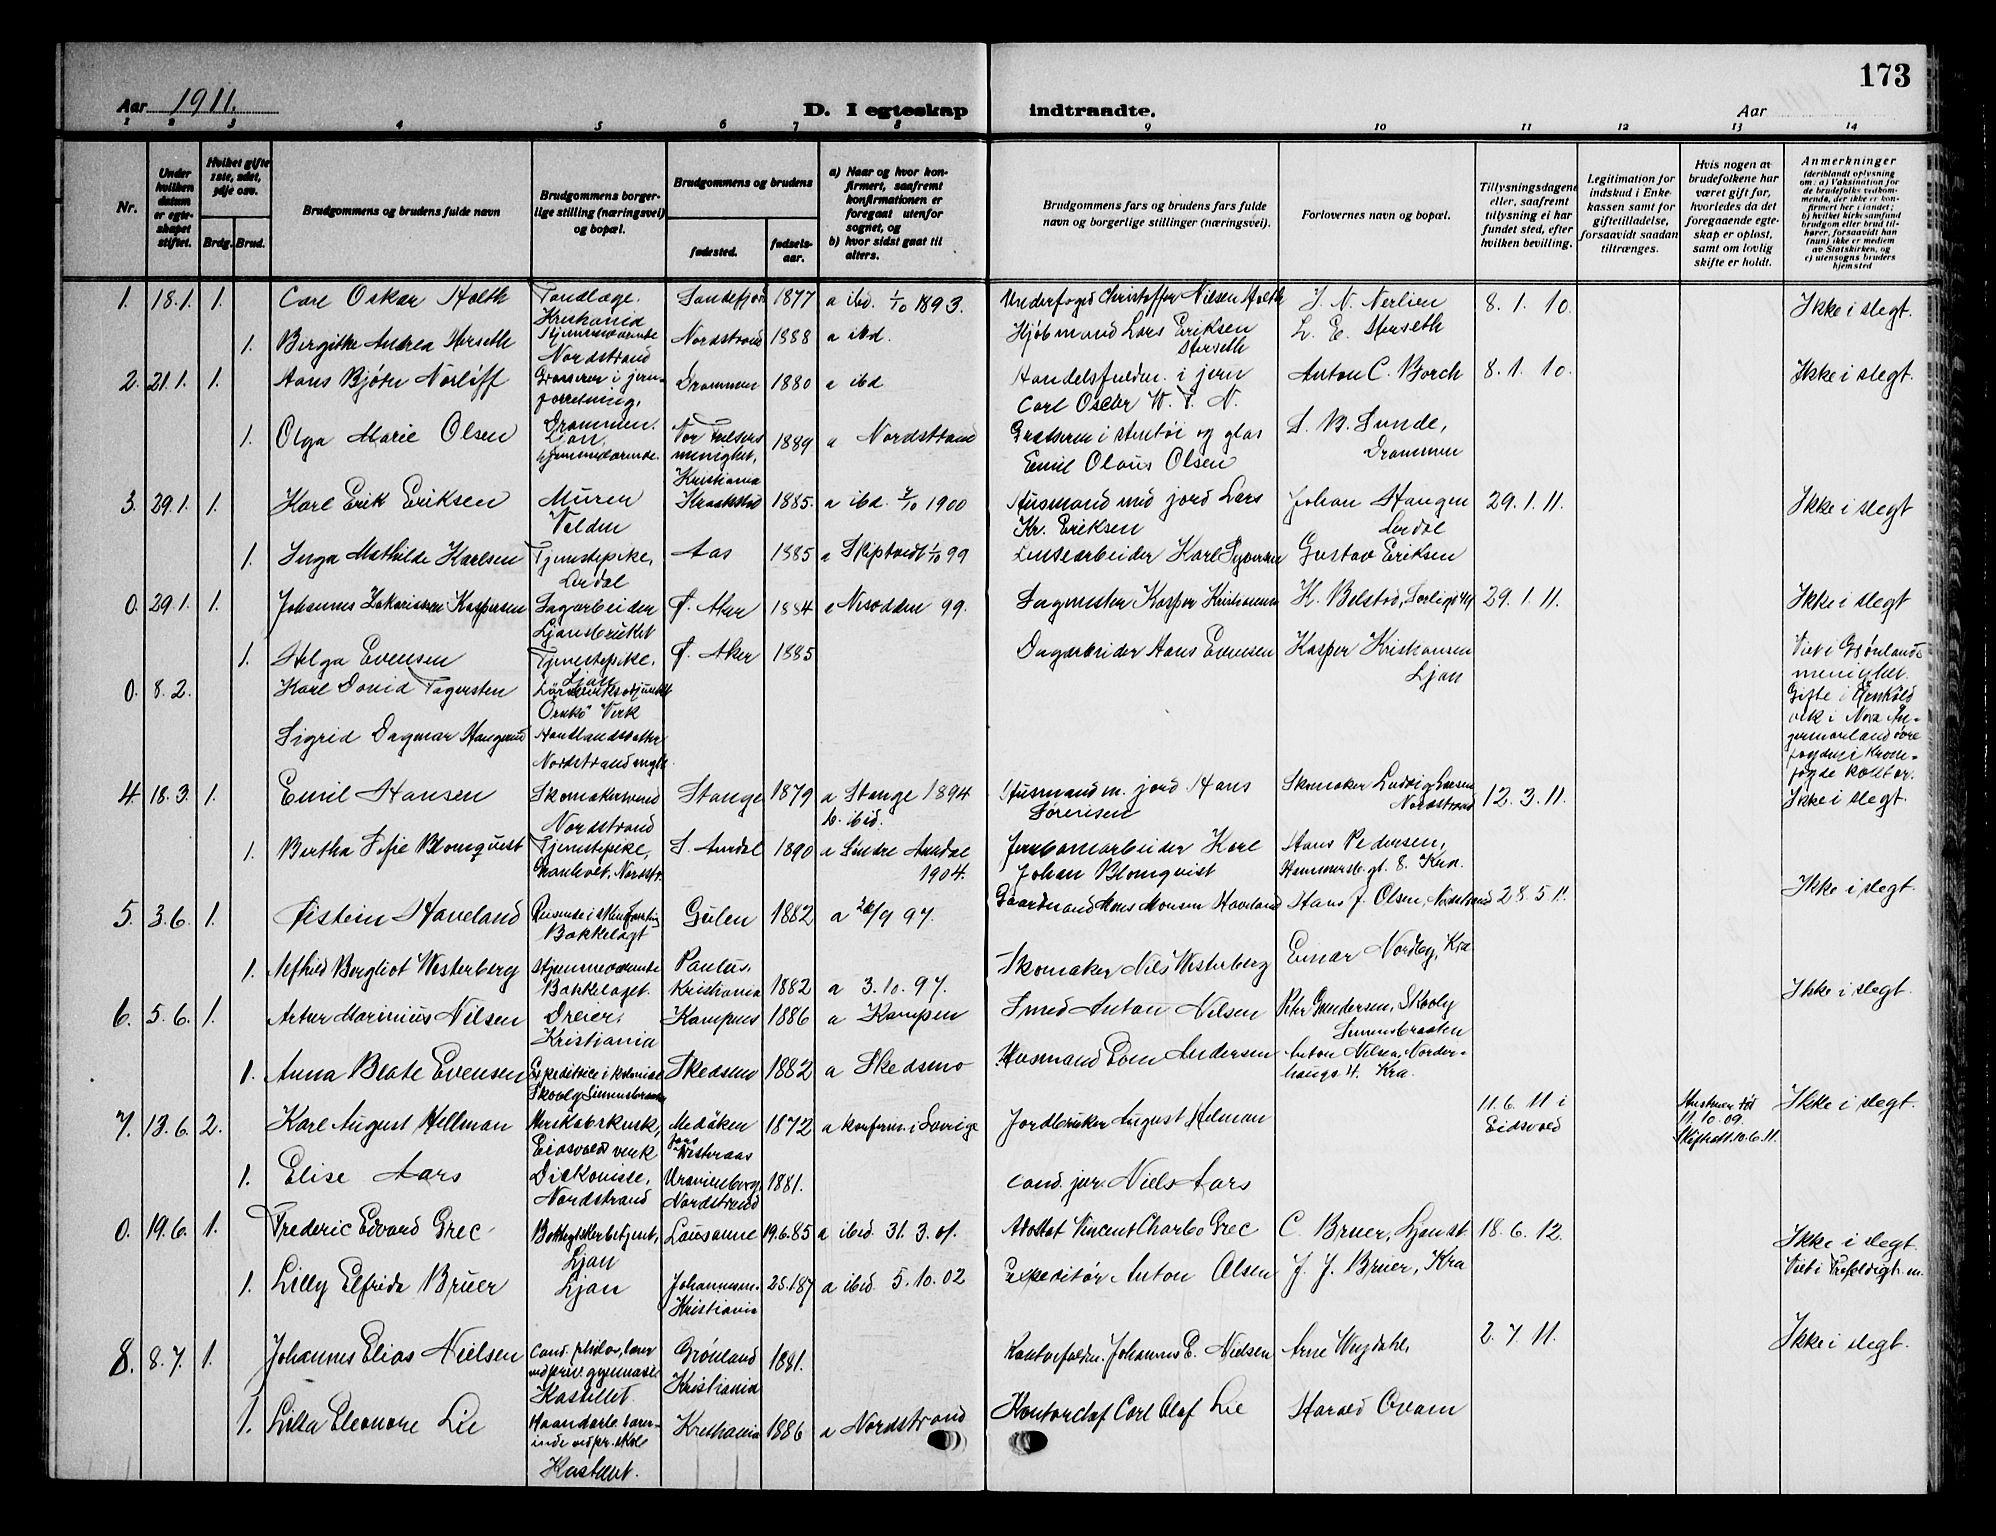 173
Aar 1911.
D. I egteskap indtraadte.
Aar
1 2 3 4 5 6 7 8 9 10 11 12 13 14
Nr.
Under hvilken datum er egteskapet stiftet.
Hvilket gifte 1ste, 2det, 3dje osv.
Brdg. Brud.
Brudgommens og brudens fulde navn
Brudgommens borgerlige stilling (næringsvei) og bopæl.
Brudgommens og brudens
fødested.
fødselsaar.
a) Naar og hvor konfirmert, saafremt konfirmationen er foregaat utenfor sognet, og
b) hvor sidst gaat til alters.
Brudgommens fars og brudens fars fulde navn og borgerlige stillinger (næringsvei).
Forlovernes navn og bopæl.
Tillysningsdagene eller, saafremt tillysning ei har fundet sted, efter hvilken bevilling.
Legitimation for indskud i Enkekassen samt for giftetilladelse, forsaavidt saadan tiltrænges.
Hvis nogen av brudefolkene har været gift før, hvorledes da det foregaaende egteskap er opløst, samt om lovlig skifte er holdt.
Anmerkninger (deriblandt oplysning om: a) Vaksination for de brudefolks vedkommende, der ikke er konfirmert her i landet; b) hvilket kirkesamfund brudgom eller brud tilhører, forsaavidt han (hun) ikke er medlem av Statskirken, og c) utensogns bruders hjemsted
1. 18.1. 1. Carl Oskar Holth Tandlæge. Kristiania Sandefjord 1877 a ibd. 1/10 1893. Underfoged Christoffer Nilsen Holth J. N. Nerlien 8. 1. 10. Ikke i slegt.
1. Birgitte Andrea Herseth Hjemmeværende Nordstrand Nordstrand 1888 a ibd. Lars Eriksen Herseth L. E. Herseth
2. 21.1. 1. Hans Bjørn Norløff Grosserer i jernforretning, Drammen. Drammen 1880 a ibd Handelsfuldm. i jern Carl Oscar W. T. N. Anton C. Borch 8. 1. 10. Ikke i slegt.
1. Olga Marie Olsen Ljan. hjemmeværende. Vor Frelsers menighet, Kristiania 1889 a Nordstrand Grosserer i stentøi og glas Emil Olaus Olsen S. B. Sunde, Drammen
3. 29.1. 1. Karl Erik Eriksen Murer Kraakstad 1885. a ibd. 1900 Husmand med jord Lars Kr. Eriksen Johan Haugen Lerdal 29. 1. 11. Ikke i slegt
1. Inga Mathilde Karlsen Tjenestepike, Lerdal Aas 1885 a Skiptvedt 1/10 99 Karl Syversen Gustav Eriksen
0. 29.1. 1. Johannes Zakariassen Kaspersen Sagarbeider Ljansbruket Ø. Aker 1884 a Nesodden 99. Sagmester Kasper Kristiansen K. Belstad, 29. 1. 11. Ikke i slegt
1. Helga Evensen Tjenestepike. Ljan Ø. Aker 1885 Dagarbeider Hans Evensen Kasper Kristiansen Ljan Viet i Grønlands menighet.
0. 8.2. Karl David Fagersten Verk Gifte i Örnsköldsvik i Nora Ångermanland
Sigrid Dagmar Haugerud Nordstrand mght.
4. 18.3. 1. Emil Hansen Skomakersvend Nordstrand Stange 1879 a Stange 1894 b. ibid. Husmand m. jord Hans Sørensen Skomaker Ludvig Larsen Nordstrand 12. 3. 11. Ikke i slegt.
1. Bertha Sofie Blomquist Tjenestepike, Nordstr. S. Aurdal 1890 a Søndre Aurdal 1904. Jernbanearbeider Karl Johan Blomqvist Hans Pedersen, Hammersb.gt. 8. Kra.
5. 3.6. 1. Øistein Haveland Bækkelaget Gulen 1882 a 26/9 97. Gaardmand Mons Monsen Haveland Hans J. Olsen, Nordstrand 28. 5. 11. Ikke i slegt.
1. Alfhild Bergliot Westerberg Hjemmeværende Bækkelaget. Paulus, Kristiania 1882 a 3. 10. 97. Skomaker Nils Westerberg Einar Nordby, Kra
6. 5.6. 1. Artur Marinius Nilsen Dreier, Kristiania Kampens 1886 a Kampen Smed Anton Nilsen Peter Gundersen, Skovly Simensbraaten Ikke i slegt.
1. Anna Beate Evensen Expeditrice i kolonial Skovly Simensbraaten Skedsmo 1882 a Skedsmo Husmand Even Andersen Anton Nilsen, Norderhaugs 4. Kra.
7. 13.6. 2. Karl August Hellman Eidsvolds verk Medåker Westeraas 1872 a konfirm. i Sverige Jordbruker August Helman 11. 6. 11 i Eidsvold Hustruen død 11.10.09. Skifteatt. 10.6.11. Ikke i slegt.
1. Elise Aars Diakonisse, Nordstrand Uranienborg, Nordstrand 1881. cand. jur. Niels Aars
0. 19.6. 1. Frederic Edvard Grec Ljan Lausanne 19.6.85 a ibid. 31. 3. 01. Advokat Vincent Charles Grec C. Bruer, Ljan st. 18. 6. 12. Ikke i slegt.
1. Lilly Elfrida Bruer Ljan Johannesm. Kristiania 25.1 87 a ibid. 5. 10. 02 Expeditør Anton Olsen J. J. Bruer, Kra Viet i Trefoldigh. m.
8. 8.7. 1. Johannes Elias Nielsen cand. philos., lærer ved priv. gymnasie Kastellet Grønland Kristiania 1881. Kontorfuldm. Johannes E. Nielsen Arne Wegdahl, 2. 7. 11. Ikke i slegt.
1. Lilla Eleonore Lie Haandarb. lærerinde ved pr. skole Kastellet. Kristiania 1886 a Nordstrand Kontorchef Carl Olaf Lie Harald Qvam